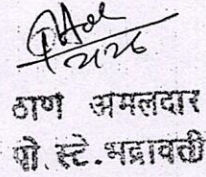 ठाणे अमलदार
पो. स्टे. भद्रावती